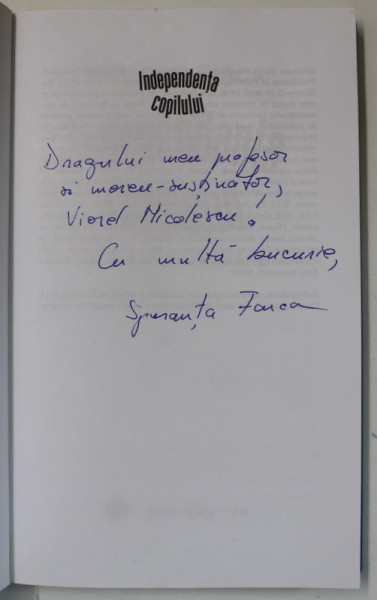 Independența
copilului
Dragului meu profesor
și mereu-susținător,
Viorel Nicolescu.
Cu multă bucurie,
Speranța Farca